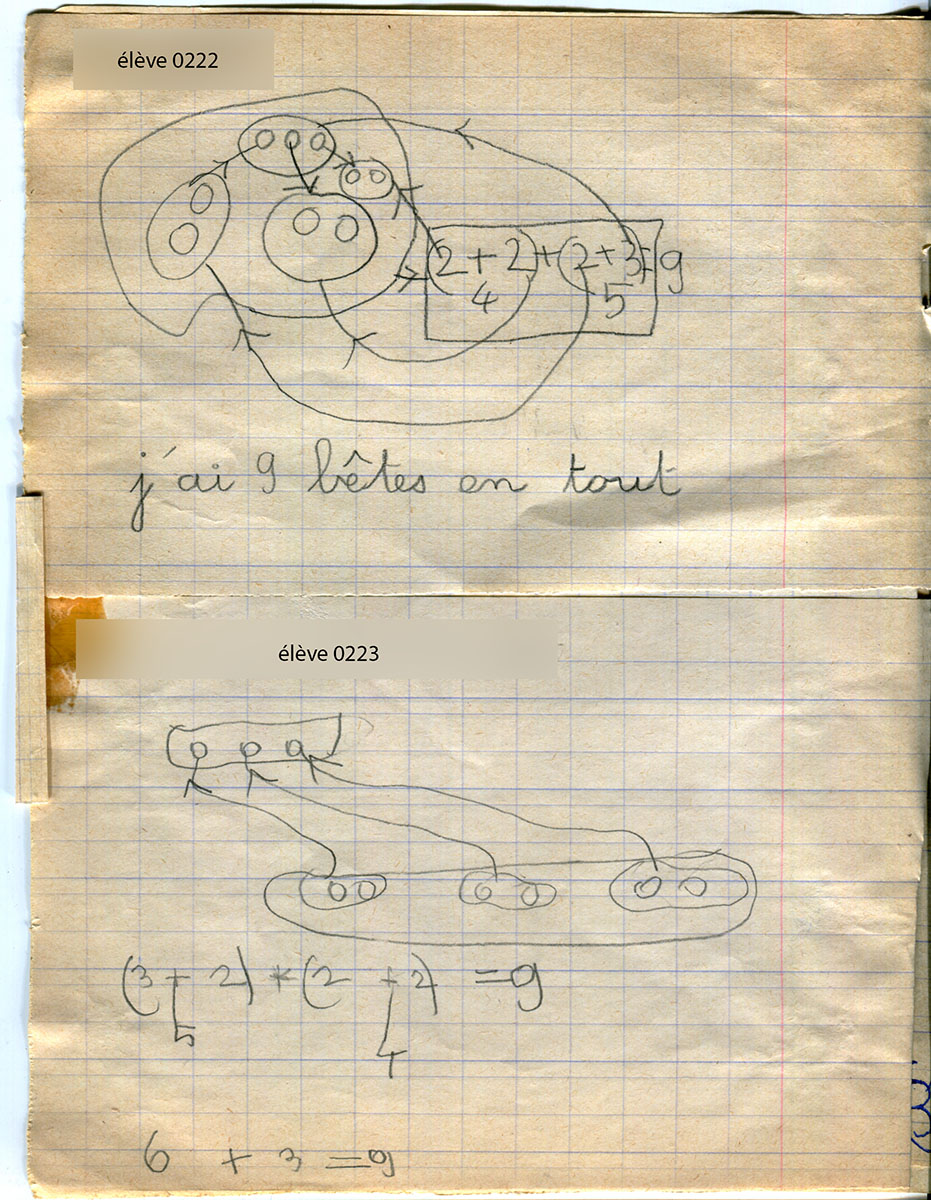 élève 0222
(2+2)+(2+3)=9
4 5
j'ai 9 bêtes en tout
élève 0223
(3+2)+(2+2)=9
5
4
6+3=9